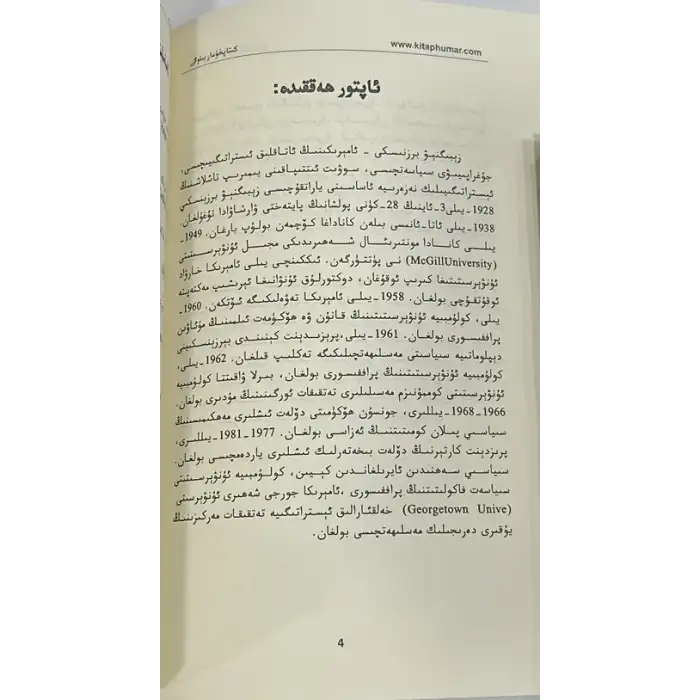 www.kitaphumar.com
كىتاپخۇمار بىلوگى
ئاپتور ھەققىدە:
زبىگنېۋ برزنىسكى - ئامېرىكىنىڭ ئاتاقلىق ئىستراتىگىيىچىسى،
جۇغراپىيىۋى سىياسەتچىسى، سوۋىت ئىتتىپاقىنى يىمىرىپ تاشلاشنىڭ
ئىستراتىگىيىلىك نەزەرىيە ئاساسىنى ياراتقۇچىسى زبىگنېۋ برزىنسكى
1928-يىلى3-ئاينىڭ 28-كۈنى پولشانىڭ پايتەختى ۋارشاۋادا تۇغۇلغان.
1938-يىلى ئاتا-ئانىسى بىلەن كاناداغا كۆچمەن بولۇپ بارغان. 1949-
يىلى كانادا مونتىرئال شەھىرىدىكى مجىل ئۇنۋېرسىتىتى
(McGillUniversity) نى پۈتتۈرگەن. ئىككىنچى يىلى ئامېرىكا خارۋاد
ئۇنۋېرسىتىتىغا كىرىپ ئوقۇغان، دوكتورلۇق ئۇنۋانىغا ئېرىشىپ مەكتەپتە
ئوقۇتقۇچى بولغان. 1958-يىلى ئامېرىكا تەۋەلىكىگە ئۆتكەن. 1960-
يىلى، كولۇمبىيە ئۇنۋېرسىتىتىنىڭ قانۇن ۋە ھۆكۈمەت ئىلمىنىڭ مۇئاۋىن
پراففىسورى بولغان. 1961-يىلى،پرېزىدېنت كېنىندى بېرزېنسكىينى
دىپلوماتىيە سىياسىتى مەسلىھەتچىلىكىگە تەكلىپ قىلغان. 1962-يىلى،
كولۇمبىيە ئۇنۋېرسىتىتىنىڭ پراففىسورى بولغان، بىرلا ۋاقىتتا كولۇمبىيە
ئۇنۋېرسىتىتى كوممۇنىزم مەسىلىلىرى تەتقىقات ئورگىنىنىڭ مۇدىرى بولغان.
1966-1968-يىللىرى، جونسۇن ھۆكۈمىتى دۆلەت ئىشلىرى مەھكىمىسىنىڭ
سىياسىي پىلان كومىتىتىنىڭ ئەزاسى بولغان. 1977-1981-يىللىرى،
پرىزدېنت كارتېرنىڭ دۆلەت بىخەتەرلىك ئىشلىرى ياردەمچىسى بولغان.
سىياسىي سەھنىدىن ئايرىلغاندىن كېيىن، كولۇمبىيە ئۇنۋېرسىتىتى
سىياسەت فاكولتىتىنىڭ پراففىسورى ،ئامېرىكا جورجى شەھىرى ئۇنۋېرسىتى
(Georgetown Unive) خەلقئارالىق ئېستراتىگىيە تەتقىقات مەركىزىنىڭ
يۇقىرى دەرىجىلىك مەسلىھەتچىسى بولغان.
4